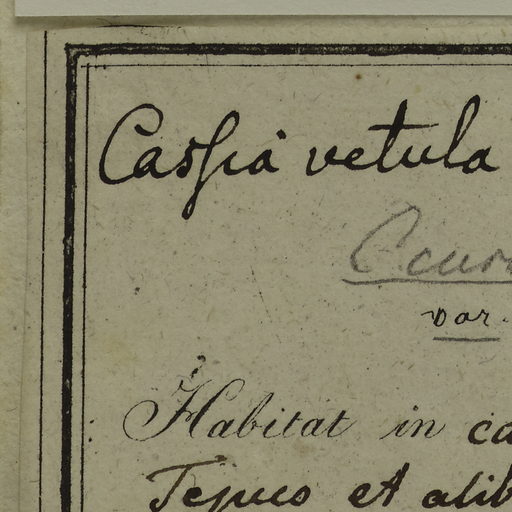 Cassia vetula
var.
Habitat in ca
Tejuco et alib